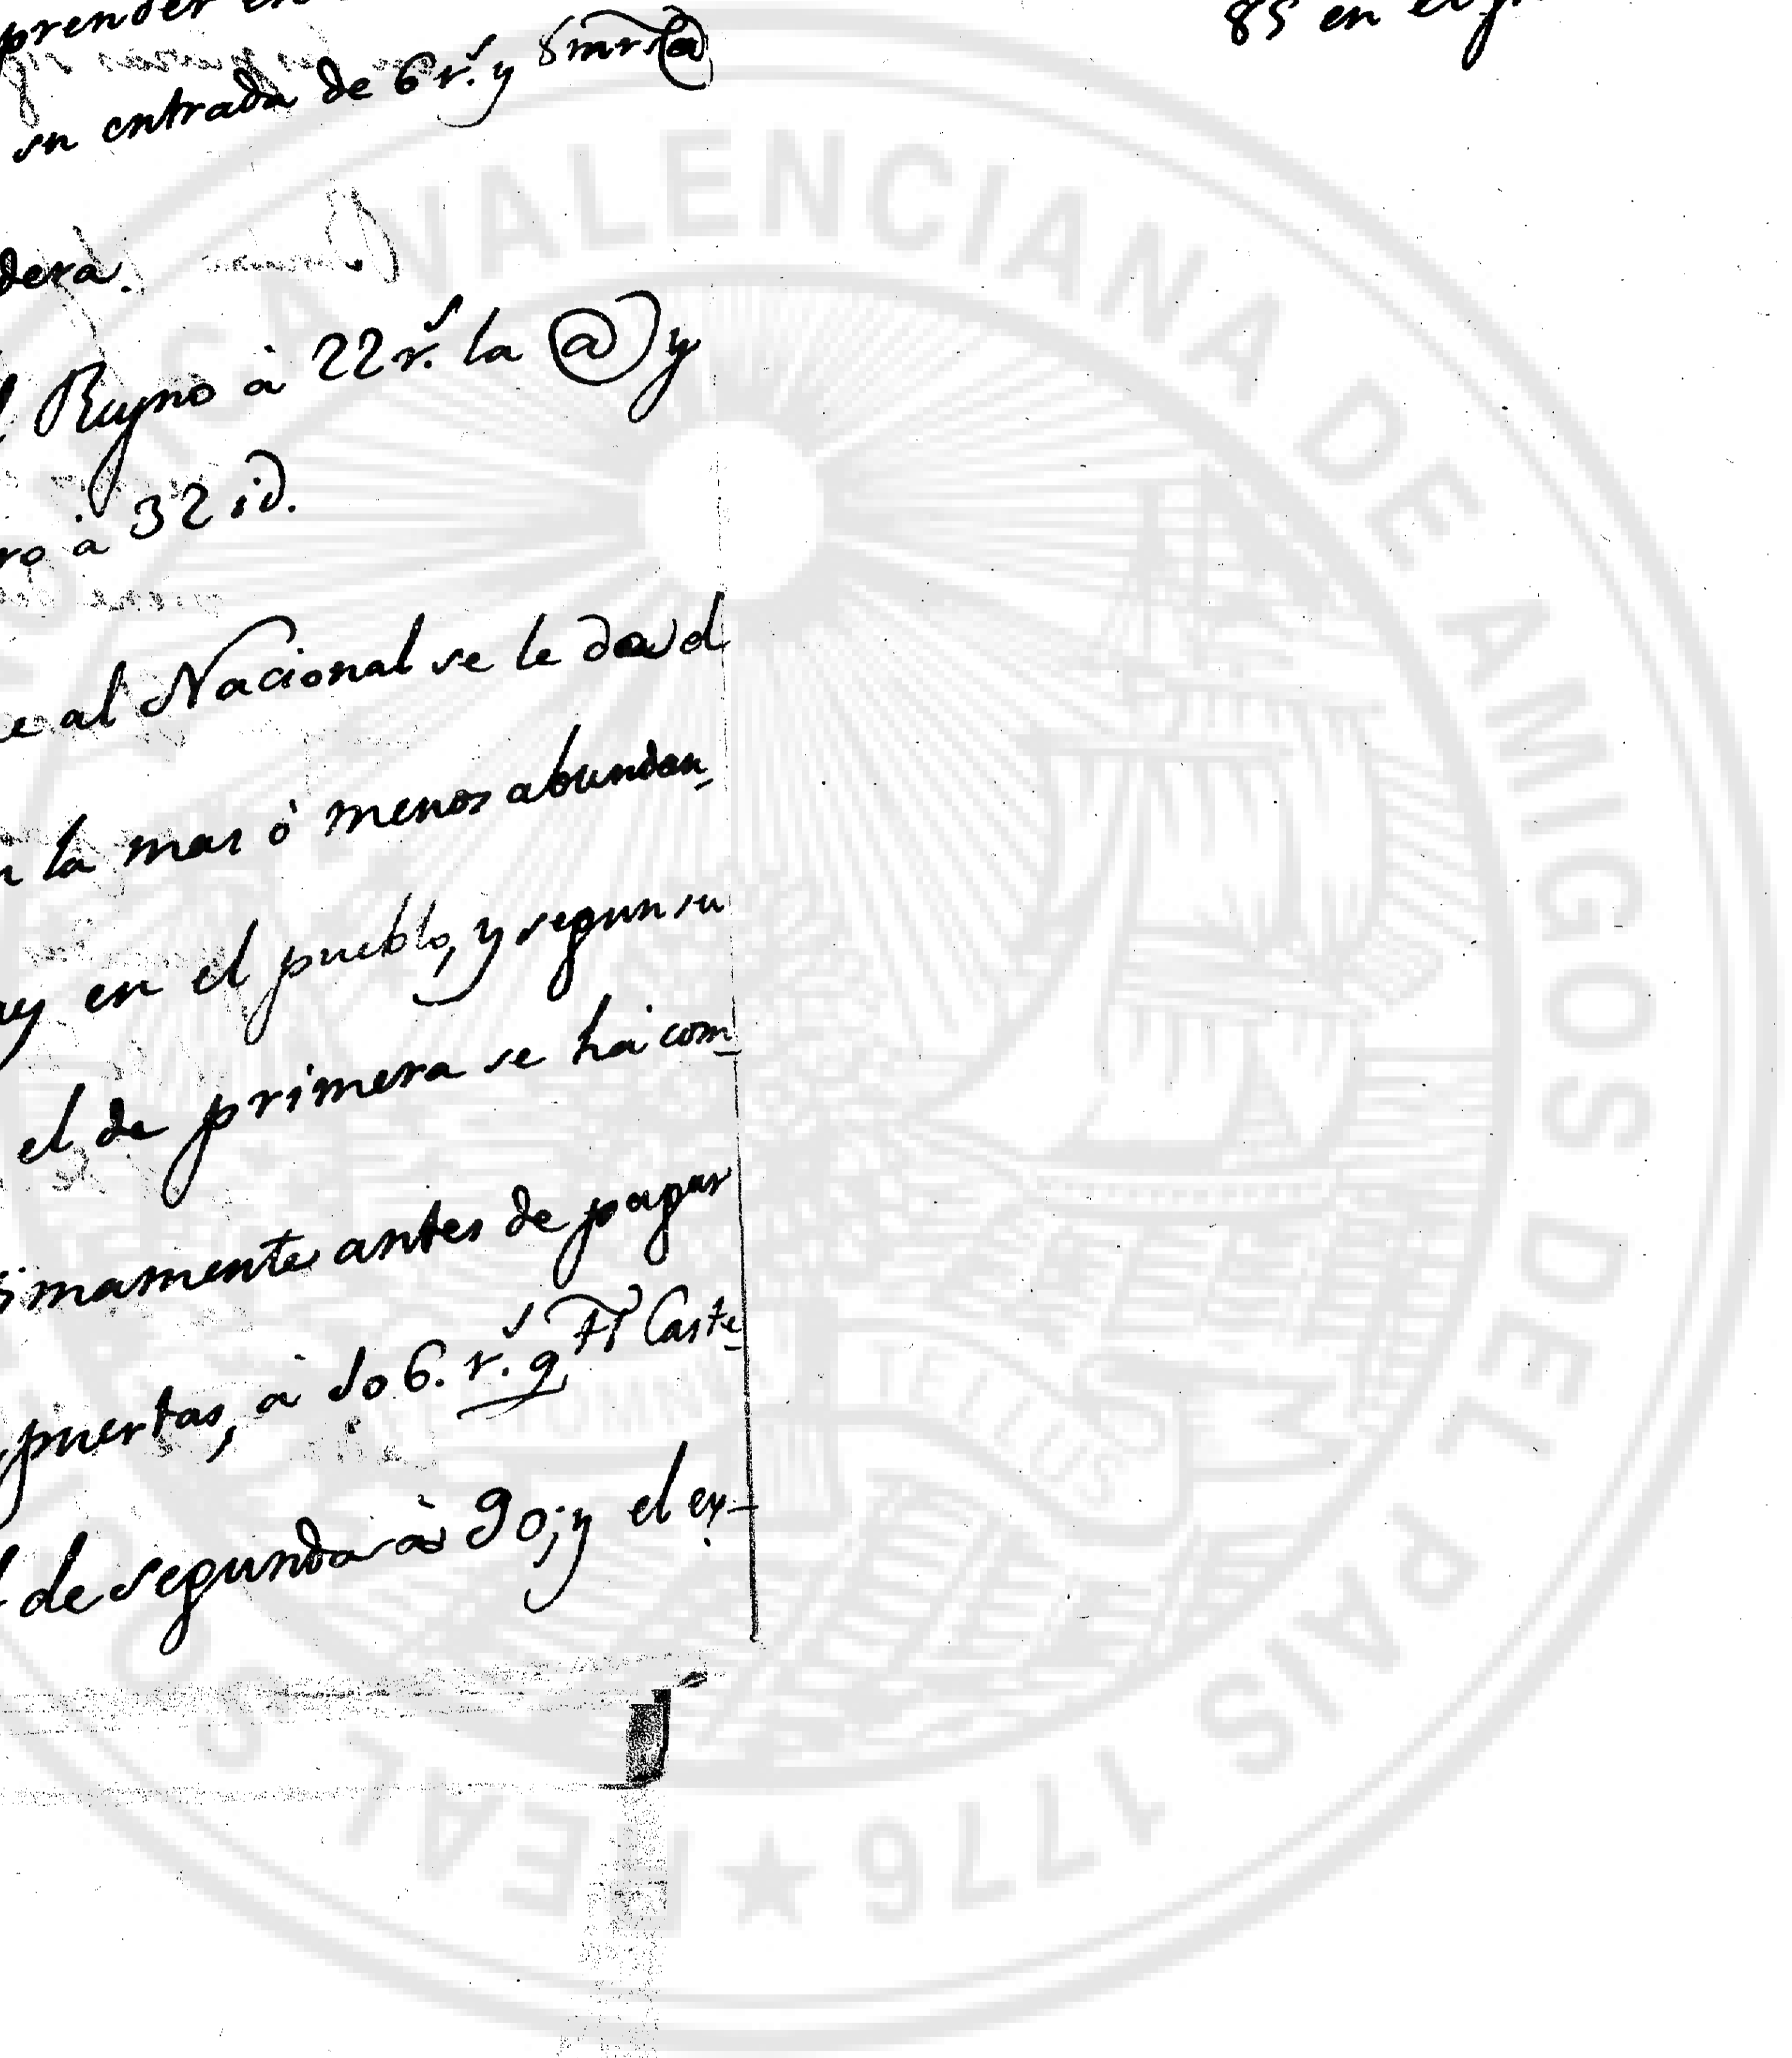 prender en
85 en el
su entrada de 6 r.s y 8 mrs @
dera.
l Reyno à 22 r.s la @ y
ro à 32 id.
e al Nacional se le dà el
n la mas ò menos abundan-
ay en el pueblo, y segun su
el de primera se hà com-
simamente antes de pagar
puertas, à 106. r.s q.tl Caste-
l de segunda à 90; y el ex-
REAL SOCIEDAD ECONÓMICA VALENCIANA DE AMIGOS DEL PAIS 1776